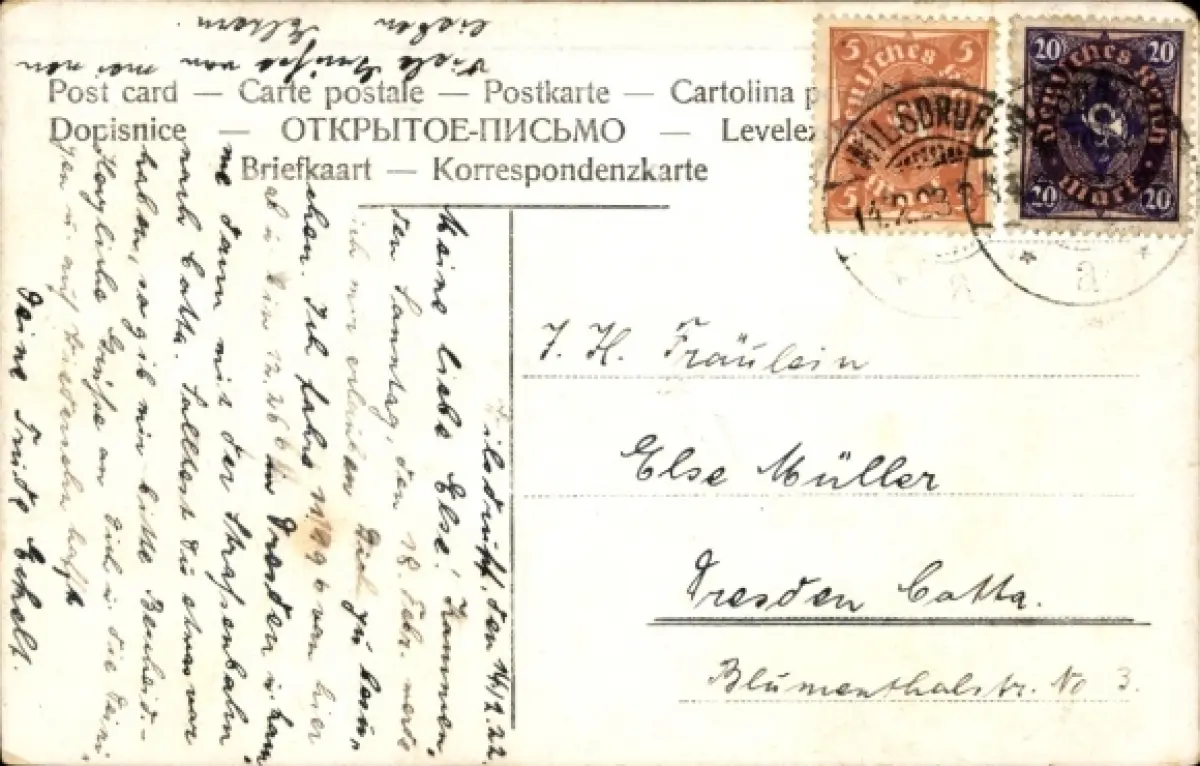 Post card — Carte postale — Postkarte — Cartolina p
Dopisnice — ОТКРЫТОЕ-ПИСЬМО — Levelez
Briefkaart — Korrespondenzkarte
5 5
Deutsches Reich
5 Mark 5
20 20
Deutsches Reich
20 Mark 20
WILSDRUFF
a
J. H. Fräulein
Else Müller
Dresden Cotta.
Blumenthalstr. No 3.
Wilsdruff, den 14/2.22.
Meine liebe Else! Kommen-
den Sonntag, den 18. Febr. werde
ich mir erlauben Dich zu besu-
chen. Ich fahre von hier
ab u. bin 12.26 in Dresden u. kom
me dann mit der Strassenbahn
nach Cotta. Solltest du etwas vor
haben, so gib mir bitte Bescheid-
Herzliche Grüsse an Dich u. die Deini
gen u. auf Wiedersehn hofft
Deine Trude Eckelt.
Viele Grüsse von meinen
lieben Eltern